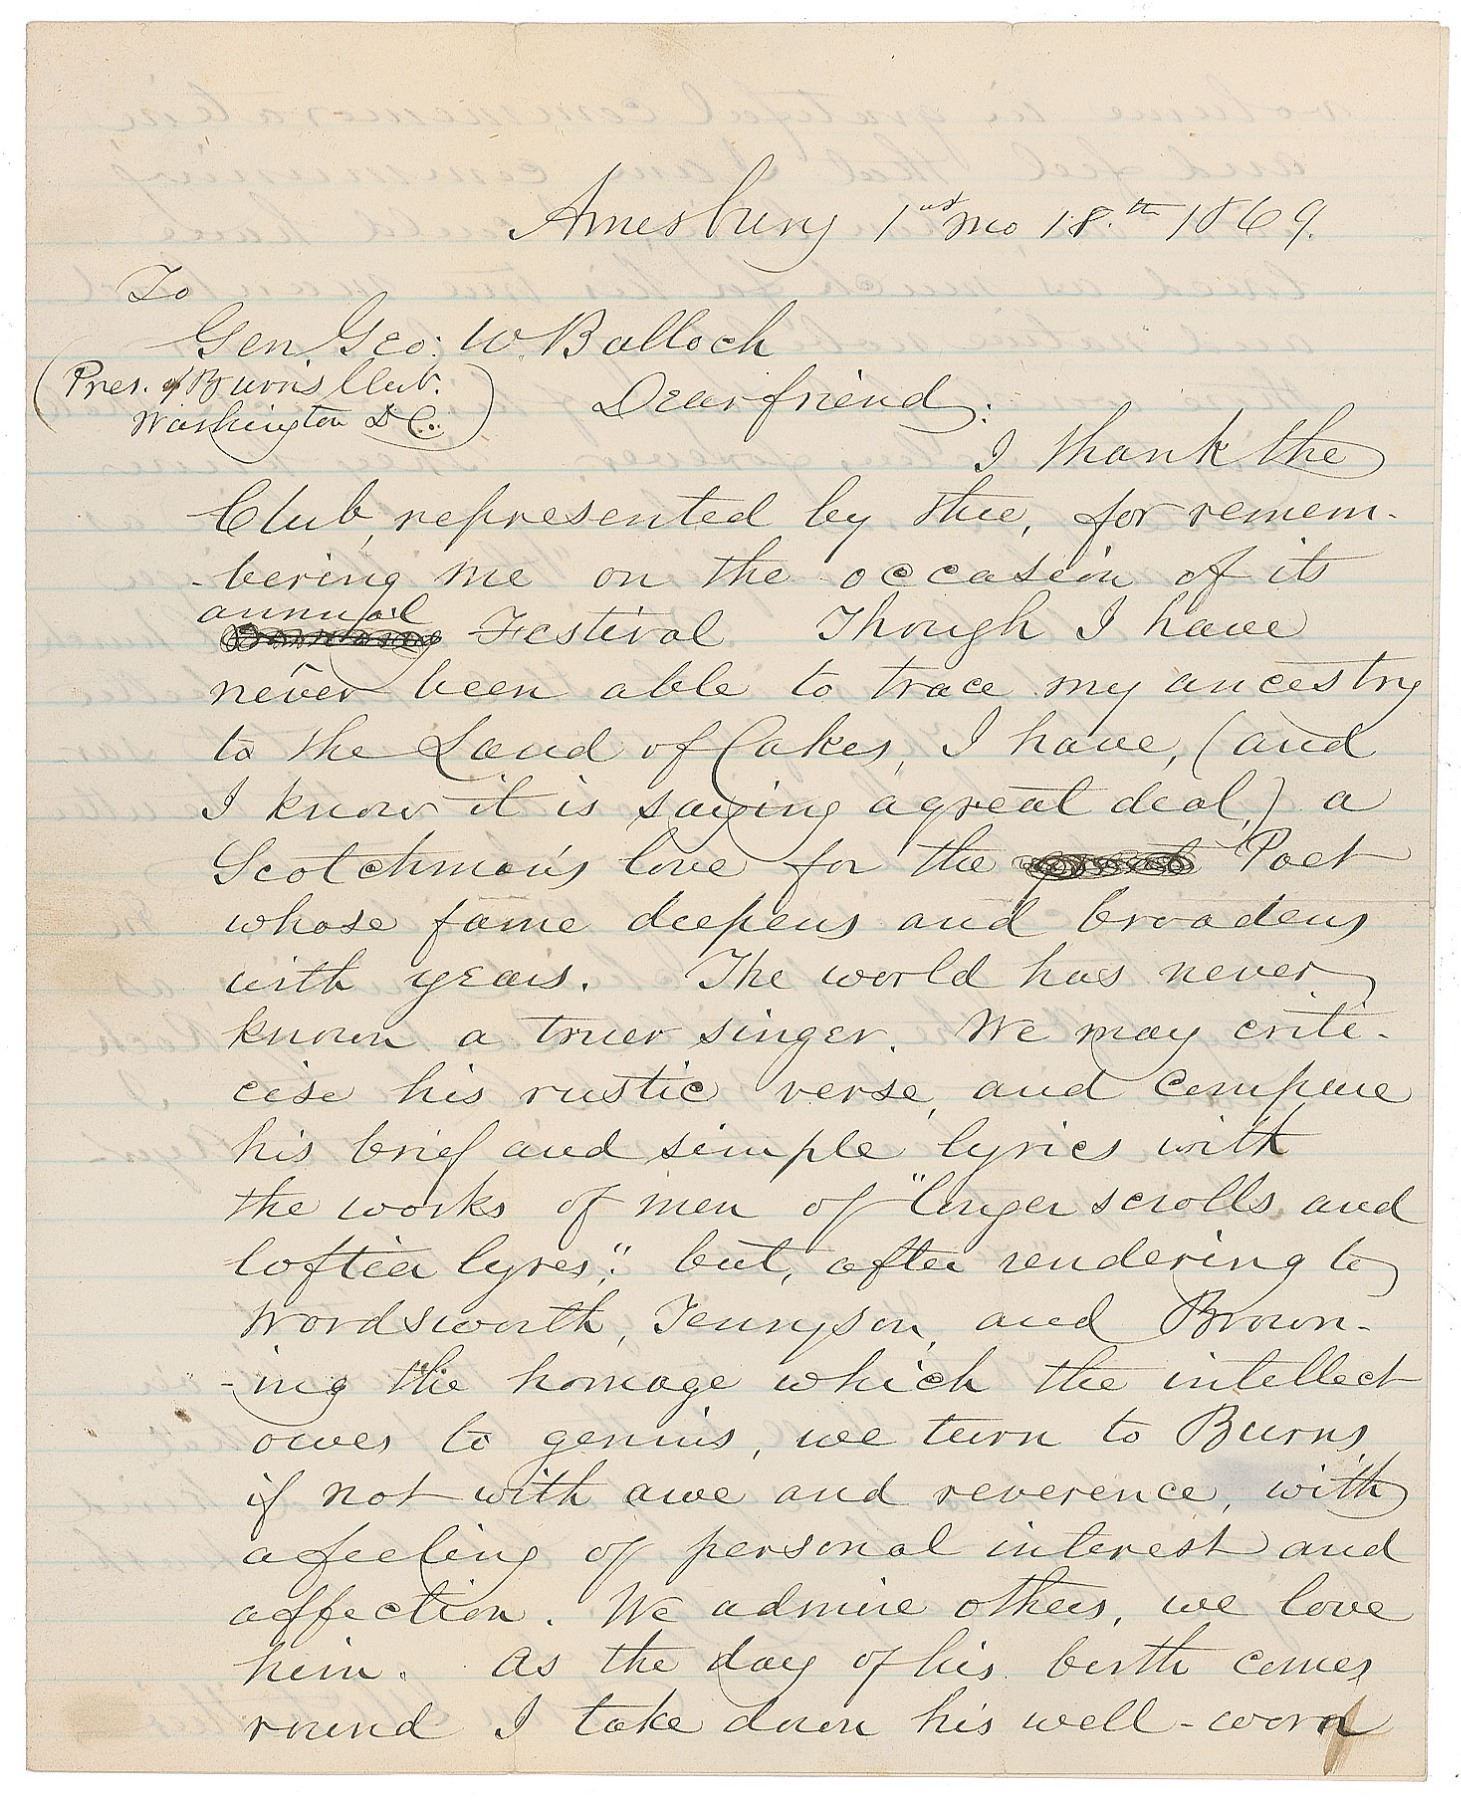 Amesbury 1st mo 18.th 1869.
To
Gen. Geo: W. Balloch
(Pres. of Burns Club.
Washington D.C.)
Dear friend:
I thank the
Club, represented by thee, for remem-
-bering me on the occasion of its
annual
Festival. Though I have
never been able to trace my ancestry
to the Land of Cakes, I have, (and
I know it is saying a great deal,) a
Scotchman's love for the Poet
whose fame deepens and broadens
with years. The world has never
known a truer singer. We may criti-
cise his rustic verse, and compare
his brief and simple lyrics with
the works of men of "longer scrolls and
loftier lyres;" but, after rendering to
Wordsworth, Tennyson, and Brown-
-ing the homage which the intellect
owes to genius, we turn to Burns,
if not with awe and reverence, with
a feeling of personal interest and
affection. We admire others, we love
him. As the day of his birth comes
round I take down his well-worn